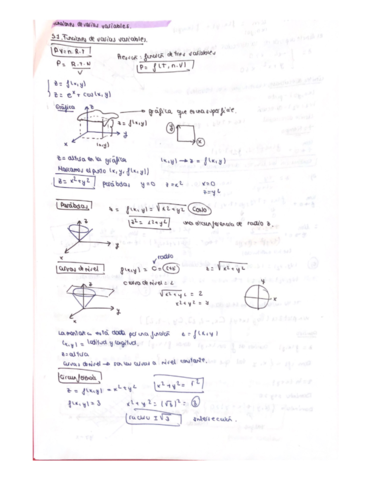 Funciones de varias variables.
3.1 Funciones de varias variables
P.V = n.R.T
Presión: función de tres variables
P = R.T.N / V
P = f(T, n, V)
z = f(x,y)
z = e^x + cos(x,y)
Gráfica
z
gráfica que es una superficie.
z = f(x,y)
y
x
(x,y)
z = altura en la gráfica
(x,y) → z = f(x,y)
z = x²+y²
parábolas
y=0
z=x²
x=0
z=y²
Parábolas
z = f(x,y) = √x²+y²
Cono
z² = x²+y²
una circunferencia de radio z.
z
y
x
Curvas de nivel
radio
f(x,y) = C = cte
z = √x²+y²
curva de nivel = 2
√x²+y² = 2
y
x
z
y
x
La montaña está dada por una función z = f(x,y)
(x,y) = latitud y longitud.
z = altura
curvas de nivel → son las curvas a nivel constante.
Circunferencia
z = f(x,y) = x²+y²
x²+y² = r²
f(x,y) = 3
x²+y² = (√3)² = 3
radio = √3